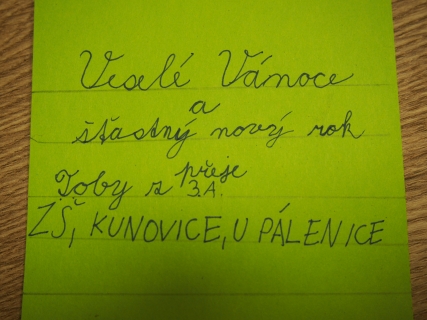 Veselé Vánoce
a
šťastný nový rok
přeje
Toby z 3.A.
ZŠ, KUNOVICE, U PÁLENICE